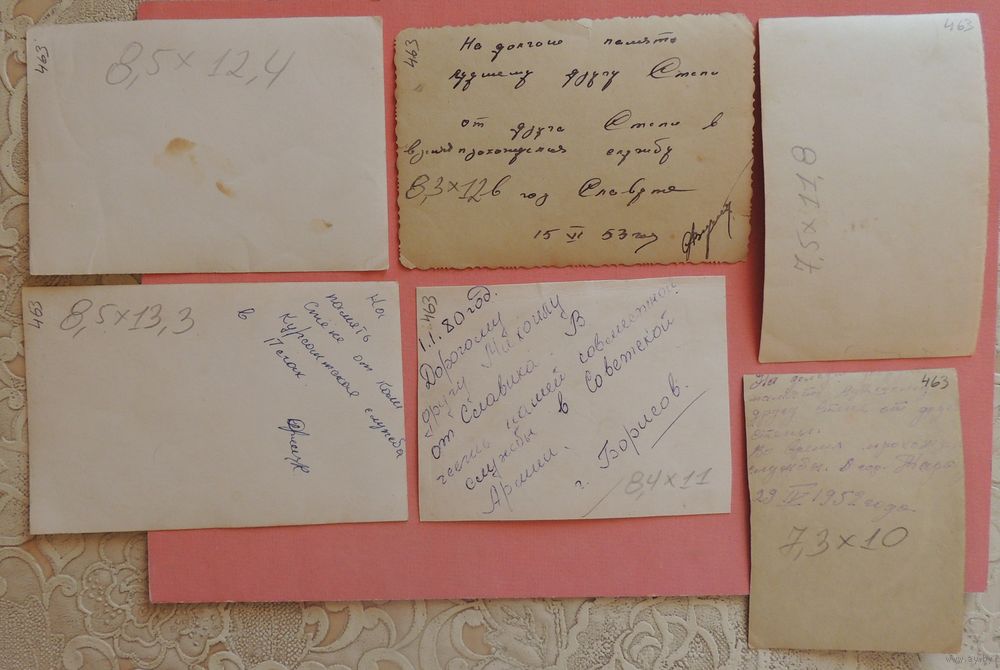 463
8,5 × 12,4
463
На долгую память
лучшему другу Степи
от друга Степи в
время прохождения службу
8,3×12 в год Славута
15 VI 53 год
463
7,5×11,8
463
8,5×13,3
На
память
Степе от Коли
Курсантская служба
в
463
1.1.80 год.
Дорогому
другу Михаилу
от Славика. В
честь нашей совместной
службы в Советской
Армии.
г. Борисов.
8,4×11
463
На долгую
память лучшему
другу Степи от друга
Степы.
Во время прохожд
службы. В гор.
29 IV 1952 года
7,3×10